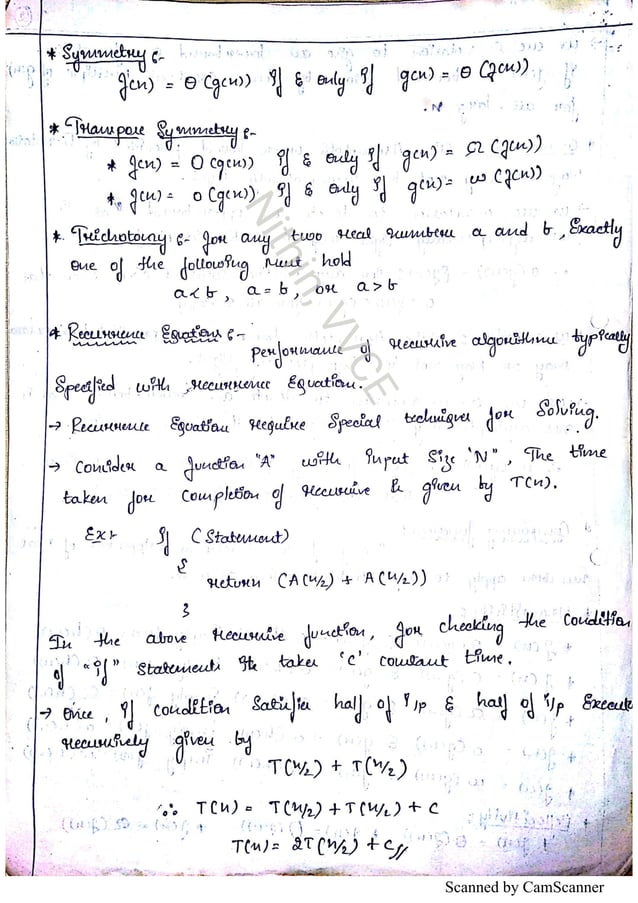 * Symmetry :-
f(n) = Θ(g(n)) If & only If g(n) = Θ(f(n))
* Transpose Symmetry :-
* f(n) = O(g(n)) If & only If g(n) = Ω(f(n))
* f(n) = o(g(n)) If & only If g(n) = ω(f(n))
* Trichotomy :- for any two real numbers a and b, Exactly
one of the following must hold
a < b, a = b, or a > b
* Recurrence Equations :-
Performance of recursive algorithms typically
Specified with recurrence Equation.
→ Recurrence Equations require Special techniques for Solving.
→ Consider a function "A" with Input Size 'N", The time
taken for Completion of recursive is given by T(n).
Ex:- If (Statement)
{
return (A(n/2) + A(n/2))
}
In the above recursive function, for checking the Condition
of "if" Statements It takes 'C' constant time.
→ Once, If condition Satisfies half of i/p & half of i/p Execute
recursively given by
T(n/2) + T(n/2)
∴ T(n) = T(n/2) + T(n/2) + C
T(n) = 2T(n/2) + C //
Nithin, VVCE
Scanned by CamScanner